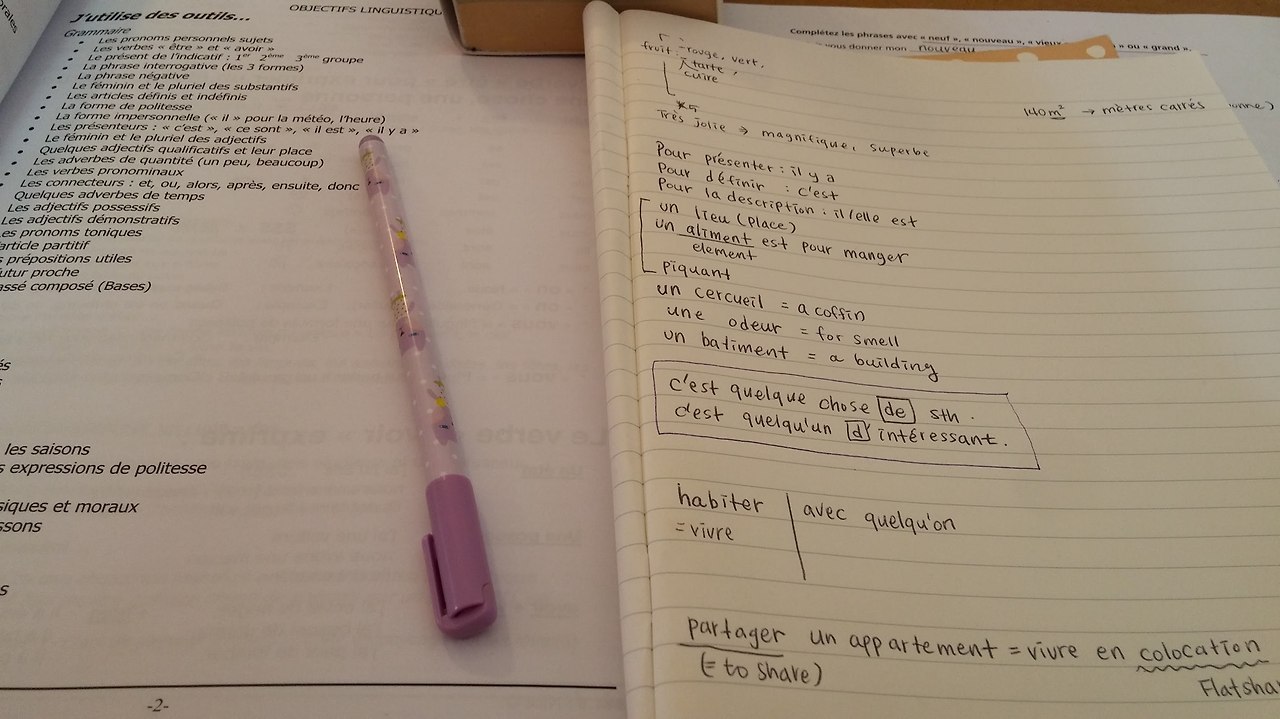 OBJECTIFS LINGUISTIQU
J'utilise des outils...
Grammaire
• Les pronoms personnels sujets
• Les verbes « être » et « avoir »
• Le présent de l'indicatif : 1er 2ème 3ème groupe
• La phrase interrogative (les 3 formes)
• La phrase négative
• Le féminin et le pluriel des substantifs
• Les articles définis et indéfinis
• La forme de politesse
• La forme impersonnelle (« il » pour la météo, l'heure)
• Les présenteurs : « c'est », « ce sont », « il est », « il y a »
• Le féminin et le pluriel des adjectifs
• Quelques adjectifs qualificatifs et leur place
• Les adverbes de quantité (un peu, beaucoup)
• Les verbes pronominaux
• Les connecteurs : et, ou, alors, après, ensuite, donc
Quelques adverbes de temps
Les adjectifs possessifs
Les adjectifs démonstratifs
es pronoms toniques
article partitif
s prépositions utiles
utur proche
assé composé (Bases)
és
les saisons
s expressions de politesse
siques et moraux
ssons
s
-2-
Complétez les phrases avec « neuf », « nouveau », « vieux » ou « grand ».
vous donner mon nouveau
fruit - rouge, vert,
tarte,
cuire
140 m² → mètres carrés
Très jolie → magnifique, superbe
Pour présenter : il y a
Pour définir : c'est
Pour la description : il/elle est
un lieu (place)
un aliment est pour manger
element
piquant
un cercueil = a coffin
une odeur = for smell
un batiment = a building
c'est quelque chose de sth.
c'est quelqu'un d'intéressant.
habiter | avec quelqu'on
= vivre
partager un appartement = vivre en colocation
(= to share)
Flatsha